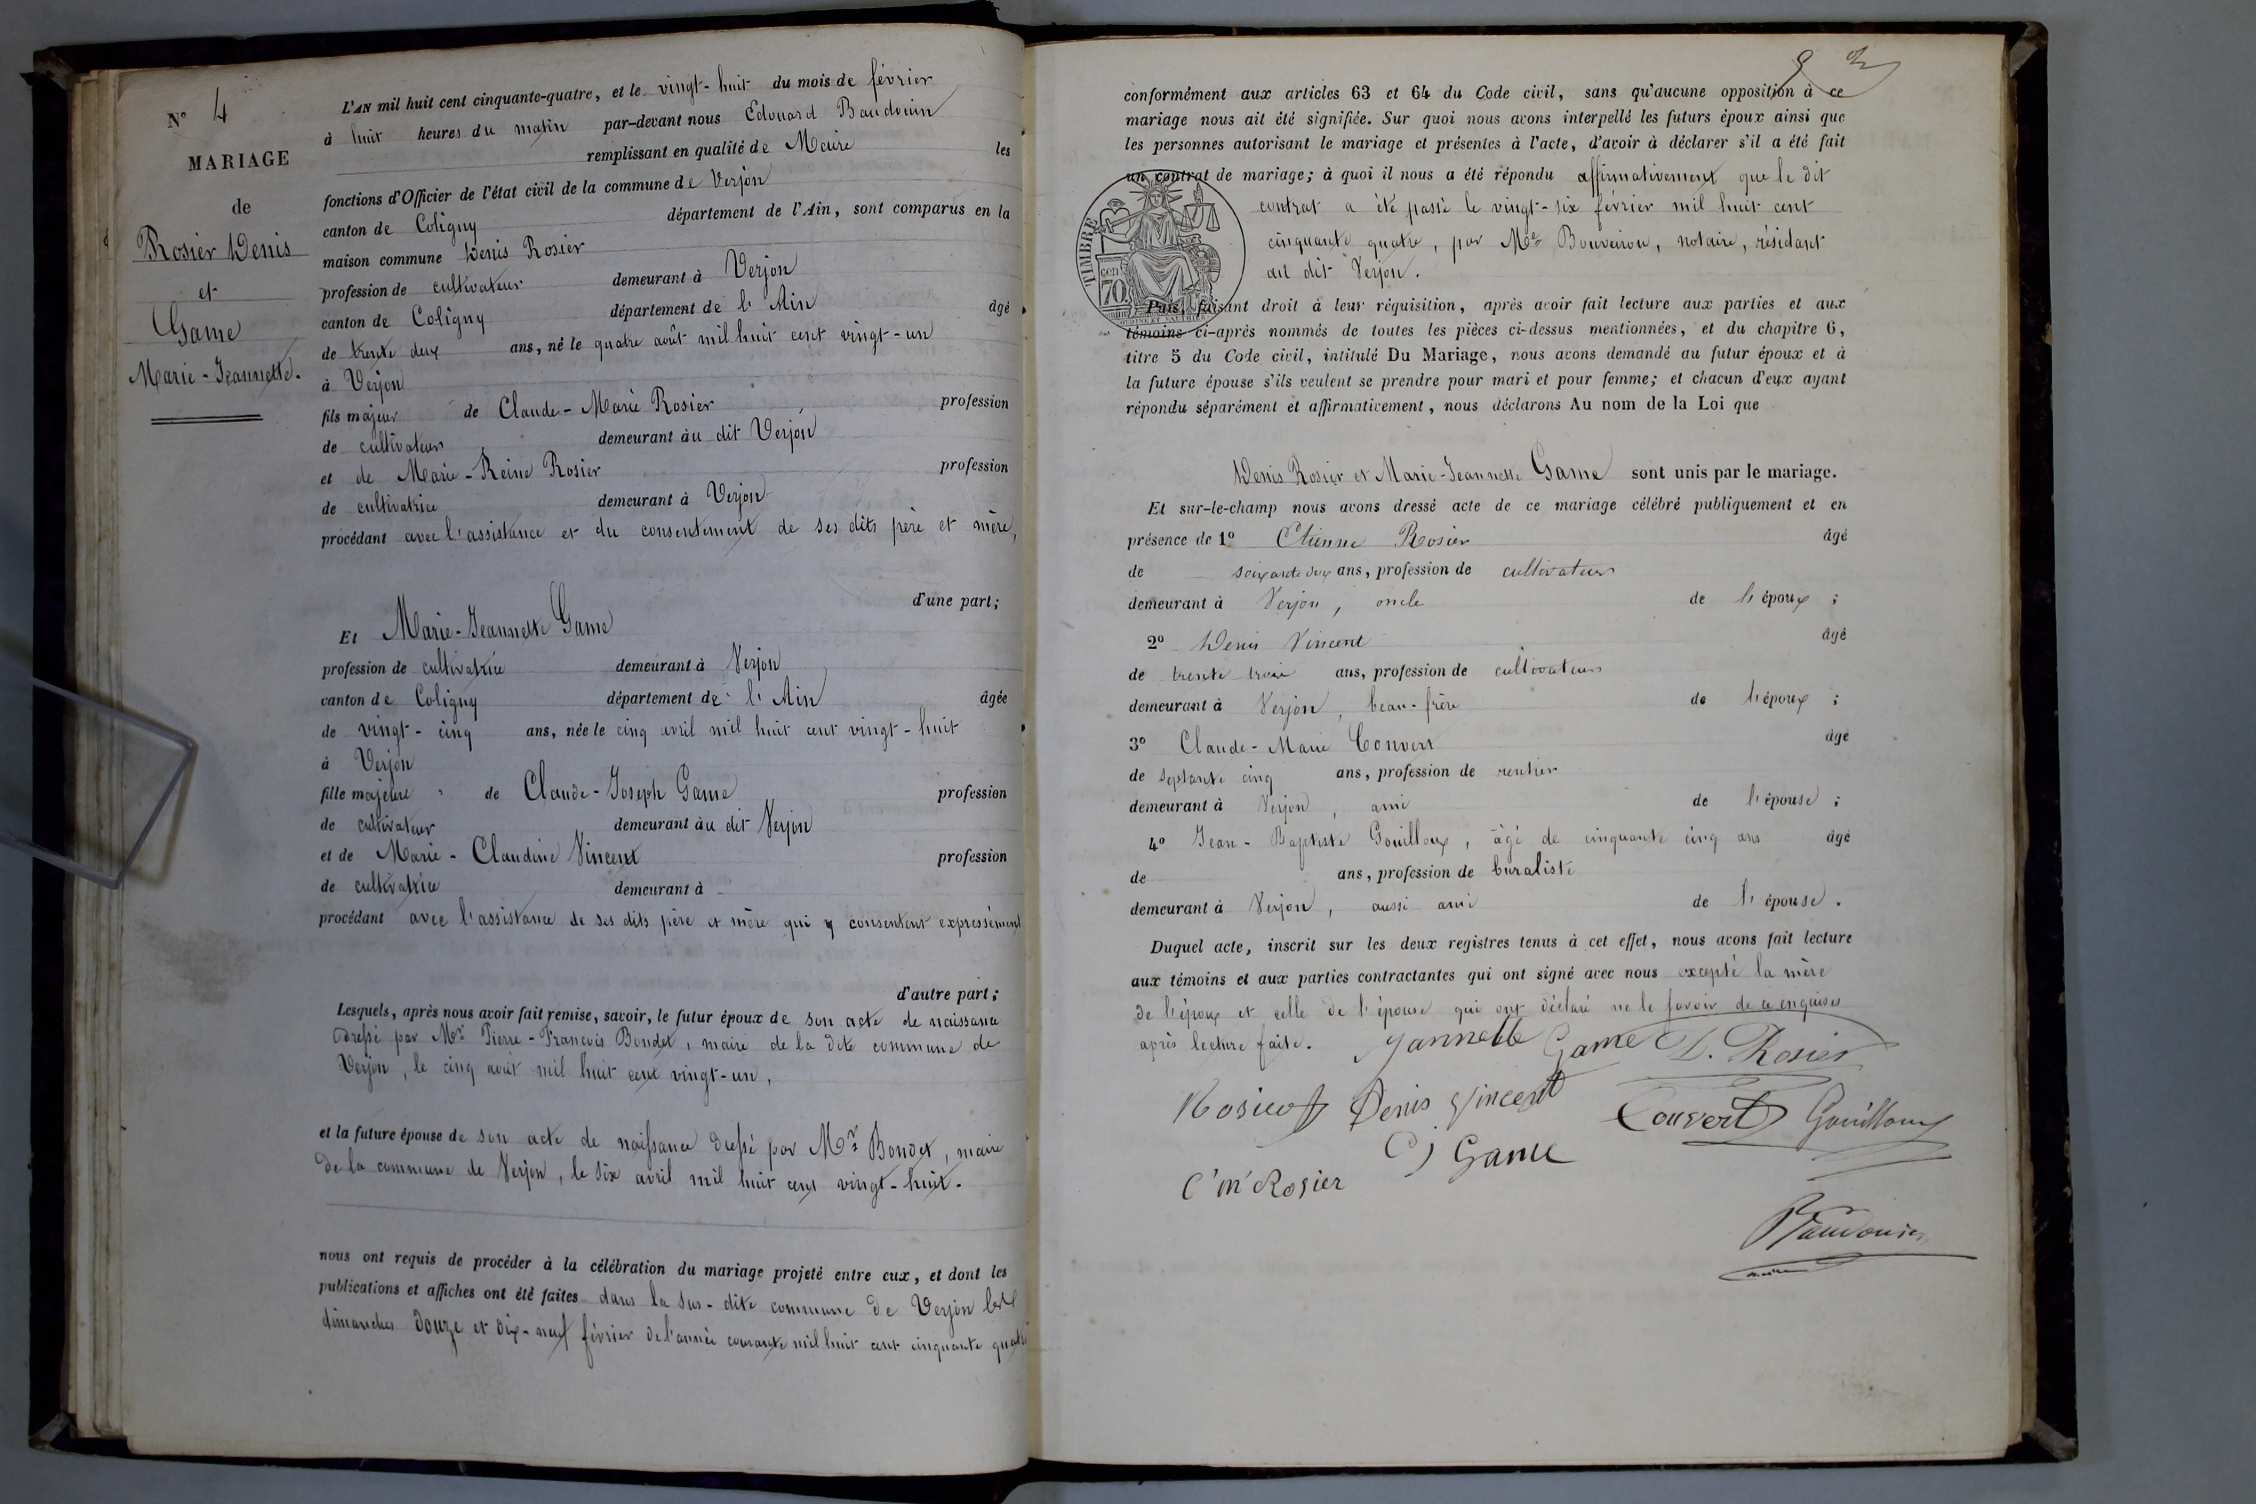 N° 4
MARIAGE
de
Rosier Denis
et
Game
Marie-Jeannette.
L'AN mil huit cent cinquante-quatre, et le vingt-huit du mois de février
à huit heures du matin par-devant nous Edouard Baudouin
remplissant en qualité de Maire les
fonctions d'Officier de l'état civil de la commune de Verjon
canton de Coligny département de l'Ain, sont comparus en la
maison commune Denis Rosier
profession de cultivateur demeurant à Verjon
canton de Coligny département de l'Ain âgé
de trente deux ans, né le quatre août mil huit cent vingt-un
à Verjon
fils majeur de Claude-Marie Rosier profession
de cultivateur demeurant àu dit Verjon
et de Marie-Reine Rosier profession
de cultivatrice demeurant à Verjon
procédant avec l'assistance et du consentement de ses dits père et mère,
d'une part;
Et Marie-Jeannette Game
profession de cultivatrice demeurant à Verjon
canton de Coligny département de l'Ain âgée
de vingt-cinq ans, née le cinq avril mil huit cent vingt-huit
à Verjon
fille majeure de Claude-Joseph Game profession
de cultivateur demeurant àu dit Verjon
et de Marie-Claudine Vincent profession
de cultivatrice demeurant à
procédant avec l'assistance de ses dits père et mère qui y consentent expressément
d'autre part;
Lesquels, après nous avoir fait remise, savoir, le futur époux de son acte de naissance
dressé par Mr Pierre-François Bondet, maire de la dite commune de
Verjon, le cinq août mil huit cent vingt-un,
et la future épouse de son acte de naissance dressé par Mr Bondet, maire
de la commune de Verjon, le six avril mil huit cent vingt-huit.
nous ont requis de procéder à la célébration du mariage projeté entre eux, et dont les
publications et affiches ont été faites dans la sus-dite commune de Verjon les
dimanches douze et dix-neuf février de l'année courante mil huit cent cinquante quatre
conformément aux articles 63 et 64 du Code civil, sans qu'aucune opposition à ce
mariage nous ait été signifiée. Sur quoi nous avons interpellé les futurs époux ainsi que
les personnes autorisant le mariage et présentes à l'acte, d'avoir à déclarer s'il a été fait
un contrat de mariage; à quoi il nous a été répondu affirmativement que le dit
contrat a été passé le vingt-six février mil huit cent
cinquante quatre, par Me Bouveirou, notaire, résidant
au dit Verjon.
TIMBRE
cen
70
Puis, faisant droit à leur réquisition, après avoir fait lecture aux parties et aux
témoins ci-après nommés de toutes les pièces ci-dessus mentionnées, et du chapitre 6,
titre 5 du Code civil, intitulé Du Mariage, nous avons demandé au futur époux et à
la future épouse s'ils veulent se prendre pour mari et pour femme; et chacun d'eux ayant
répondu séparément et affirmativement, nous déclarons Au nom de la Loi que
Denis Rosier et Marie-Jeannette Game sont unis par le mariage.
Et sur-le-champ nous avons dressé acte de ce mariage célébré publiquement et en
présence de 1° Etienne Rosier âgé
de soixante deux ans, profession de cultivateur
demeurant à Verjon, oncle de l'époux ;
2° Denis Vincent âgé
de trente trois ans, profession de cultivateur
demeurant à Verjon, beau-frère de l'époux ;
3° Claude-Marie Convert âgé
de septante cinq ans, profession de rentier
demeurant à Verjon, ami de l'épouse ;
4° Jean-Baptiste Gouilloux, âgé de cinquante cinq ans âgé
de ans, profession de buraliste
demeurant à Verjon, aussi ami de l'épouse.
Duquel acte, inscrit sur les deux registres tenus à cet effet, nous avons fait lecture
aux témoins et aux parties contractantes qui ont signé avec nous excepté la mère
de l'époux et celle de l'épouse qui ont déclaré ne le savoir de ce enquises
après lecture faite. Jannette Game D. Rosier
Rosier Denis Vincent Convert Gouilloux
C J Game
C m Rosier
Baudouin
maire